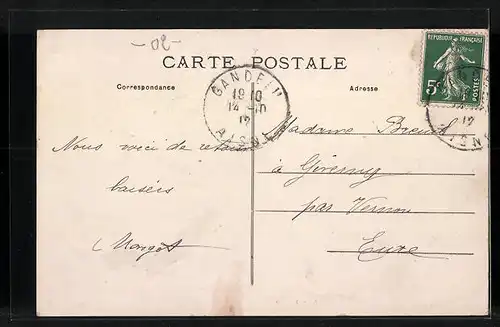 -02-
CARTE POSTALE
Correspondance
Adresse
REPUBLIQUE FRANÇAISE
5c
POSTES
GANDELU
19 10
14 -10
12
AISNE
14 -10
12
Madame
Nous voici de retour
à Giverny
baisers
par Vernon
Margot
Eure